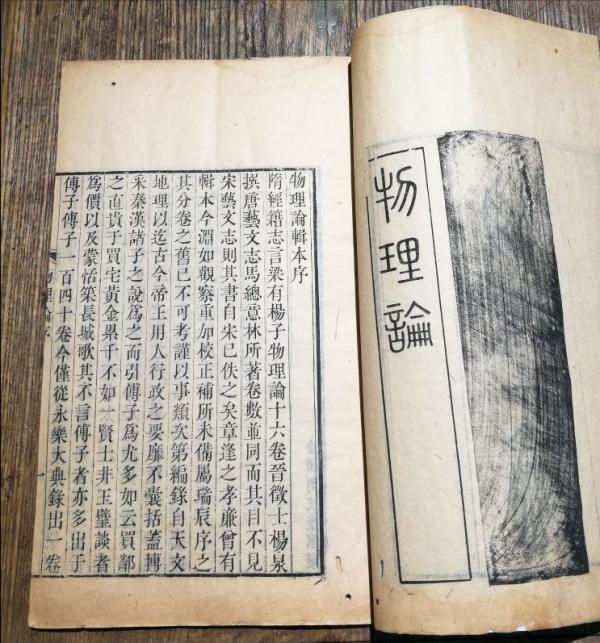 物理論
物理論輯本序
隋經籍志言梁有楊子物理論十六卷晉徵士楊泉
撰唐藝文志馬總意林所著卷數並同而其目不見
宋藝文志則其書自宋已佚之矣章逢之孝廉曾有
輯本今淵如觀察重加校正補所未備屬瑞辰序之
其分卷之舊已不可考謹以事類次第編錄自天文
地理以迄古今帝王用人行政之要靡不囊括蓋博
采秦漢諸子之說爲之而引傅子爲尤多如云買鄰
之直貴于買宅黃金累千不如一賢士非玉璧談者
爲價以及蒙恬築長城歌其不言傅子者亦多出于
傅子傅子一百四十卷今僅從永樂大典錄出一卷
物理論序
一